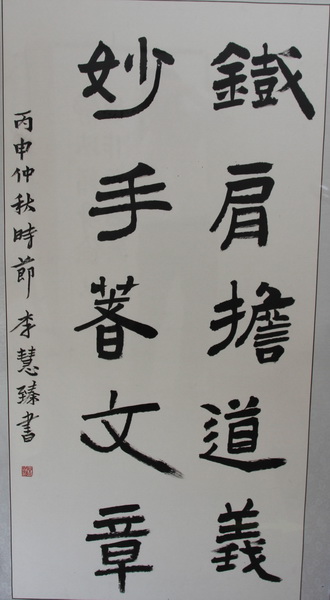 鐵肩擔道義
妙手著文章
丙申仲秋時節李慧臻書